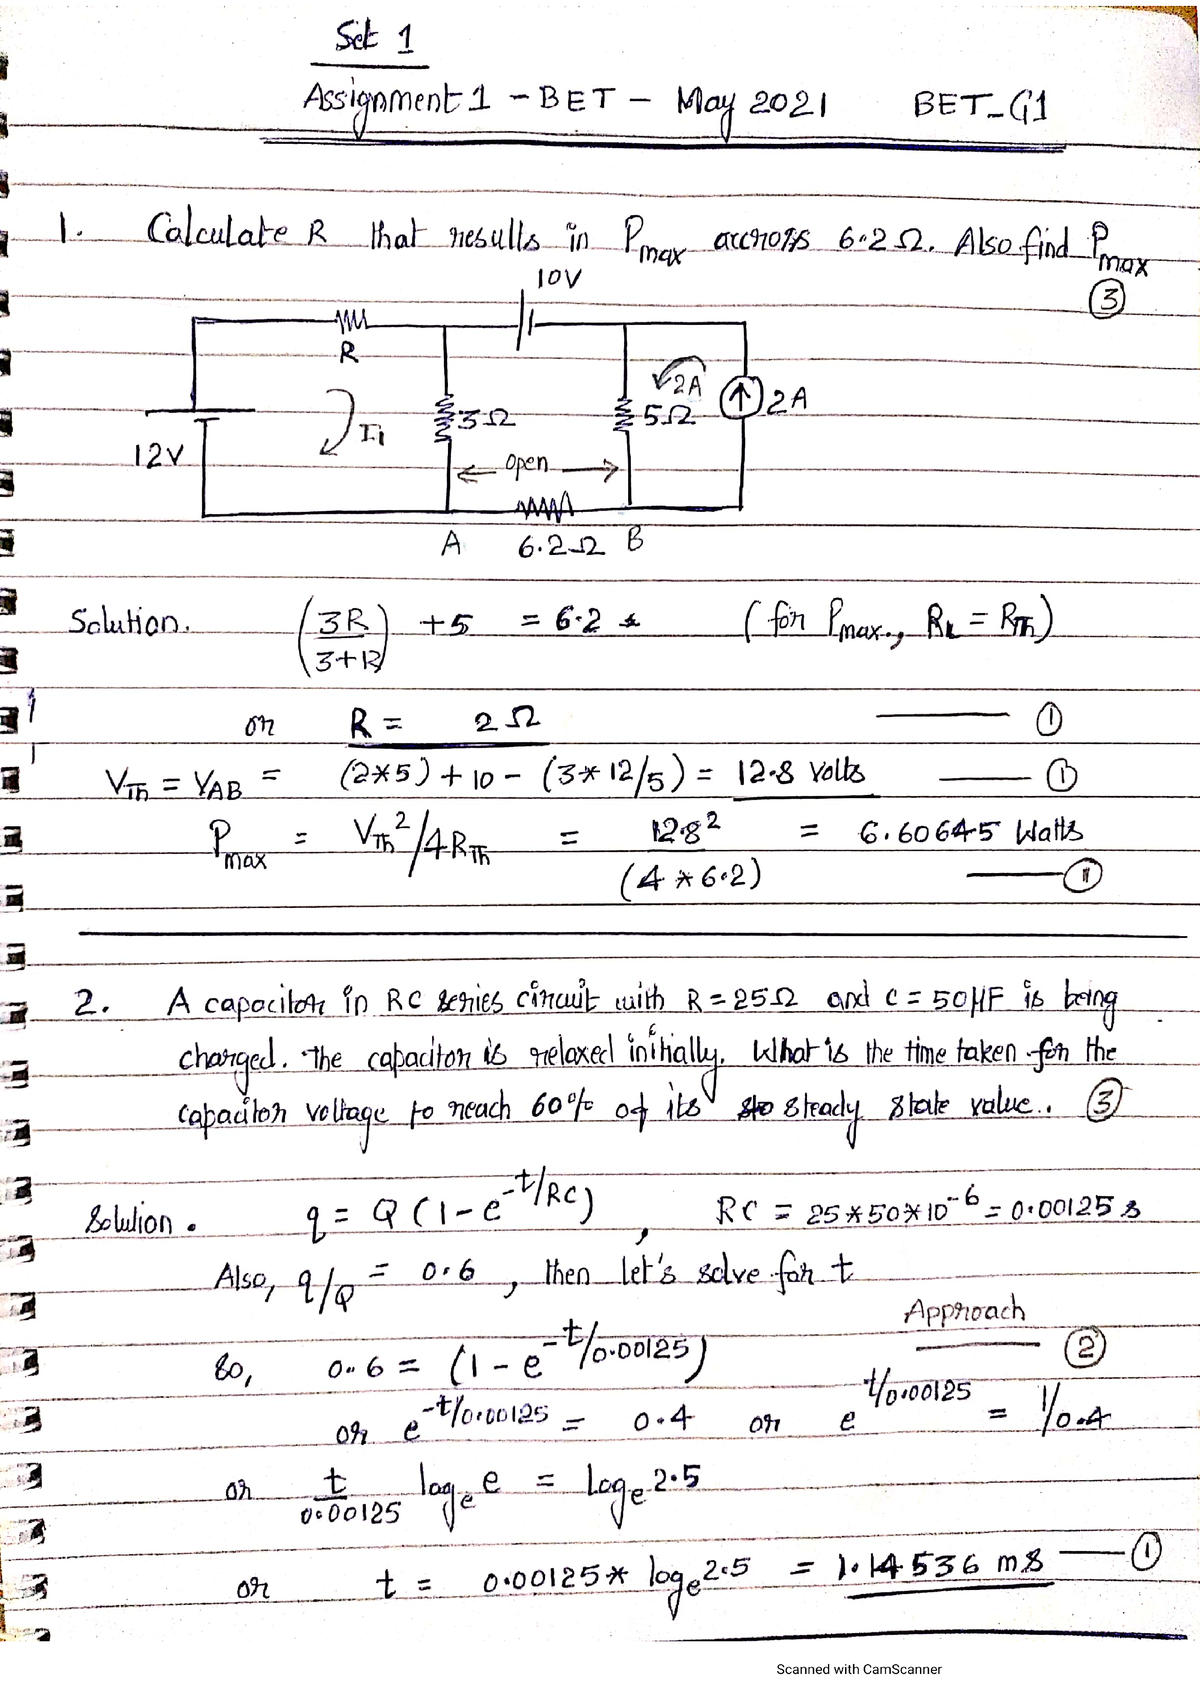 Set 1
Assignment 1 - BET - May 2021 BET_G1
1. Calculate R that results in Pmax accross 6.2Ω. Also find Pmax
③
10V
R
2A
3Ω 5Ω 2A
I1
12V
open
A 6.2Ω B
Solution. (3R/3+R) + 5 = 6.2 (for Pmax., RL = RTh)
or R = 2Ω ①
VTh = VAB = (2*5) + 10 - (3*12/5) = 12.8 Volts ①
Pmax = VTh²/4RTh = 12.8²/(4*6.2) = 6.60645 Watts
①
2. A capacitor in RC series circuit with R = 25Ω and C = 50μF is being
charged. The capacitor is relaxed initially. What is the time taken for the
capacitor voltage to reach 60% of its steady state value.. ③
Solution. q = Q(1-e^-t/RC), RC = 25*50*10^-6 = 0.00125 s
Also, q/Q = 0.6, then let's solve for t
Approach
②
So, 0.6 = (1-e^-t/0.00125)
or e^-t/0.00125 = 0.4 or e^t/0.00125 = 1/0.4
or t/0.00125 logₑ e = logₑ 2.5
or t = 0.00125* logₑ 2.5 = 1.14536 ms ①
Scanned with CamScanner